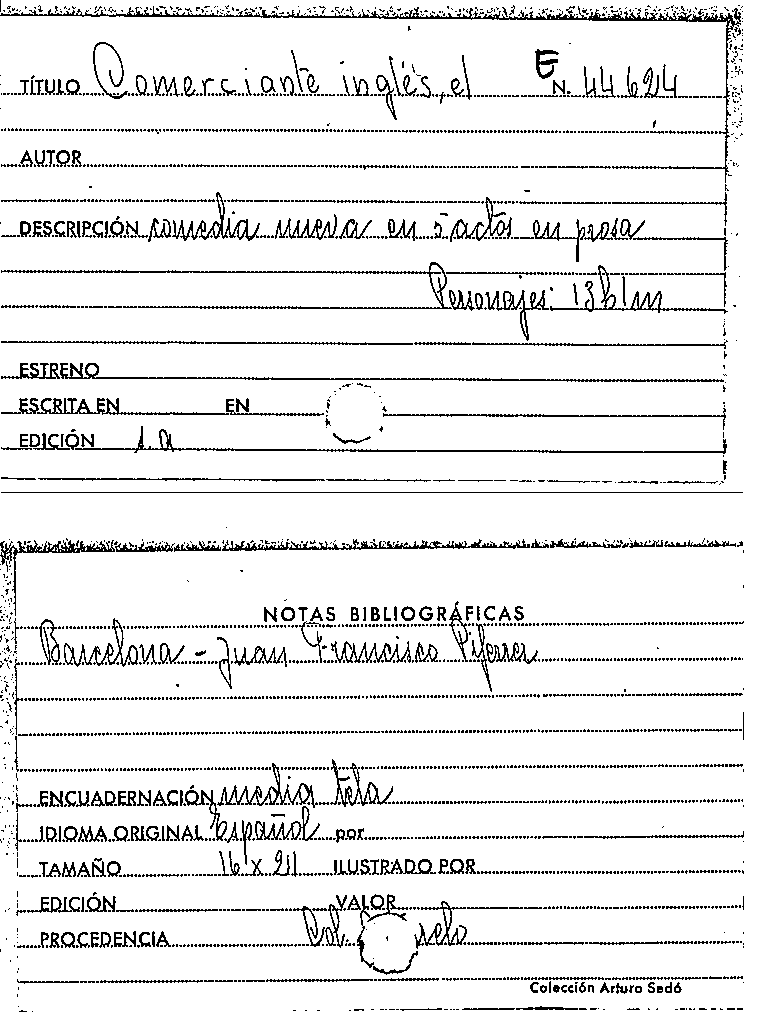 TÍTULO Comerciante inglés, el E N. 44624
AUTOR
DESCRIPCIÓN comedia nueva en 5 actos en prosa
Personajes: 13 h 1 m
ESTRENO
ESCRITA EN EN
EDICIÓN s.a
NOTAS BIBLIOGRÁFICAS
Barcelona - Juan Francisco Piferrer
ENCUADERNACIÓN media tela
IDIOMA ORIGINAL Español por
TAMAÑO 16 x 21 ILUSTRADO POR
EDICIÓN VALOR
PROCEDENCIA Col.
Colección Arturo Sedó